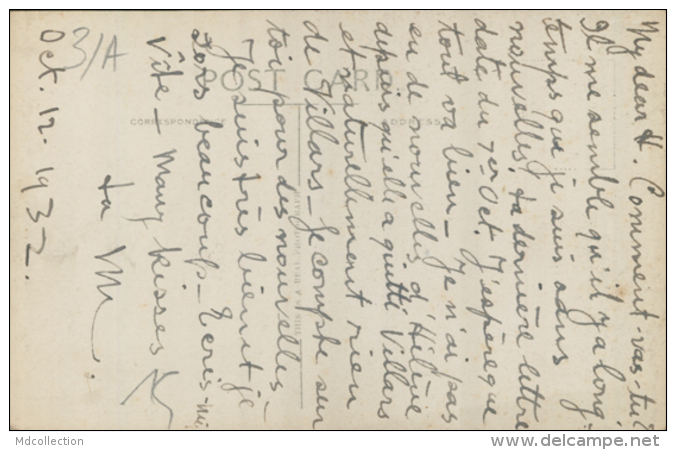 My dear H. Comment-vas-tu?
Il me semble qu'il y a long-
temps que je suis sans
nouvelles. ta dernière lettre
date du 7er Oct. J'espère que
tout va bien – Je n'ai pas
eu de nouvelles d'Hélène
depuis qu'elle a quitté Villars
et naturellement rien
de Villars – Je compte sur
toi pour des nouvelles –
Je suis très bien et je
beaucoup – Ecris-
Vite – Many kisses
ta
Oct. 12. 1932.
3/A
POST CARD
CORRESPONDENCE
ADDRESS
Mdcollection
www.delcampe.net